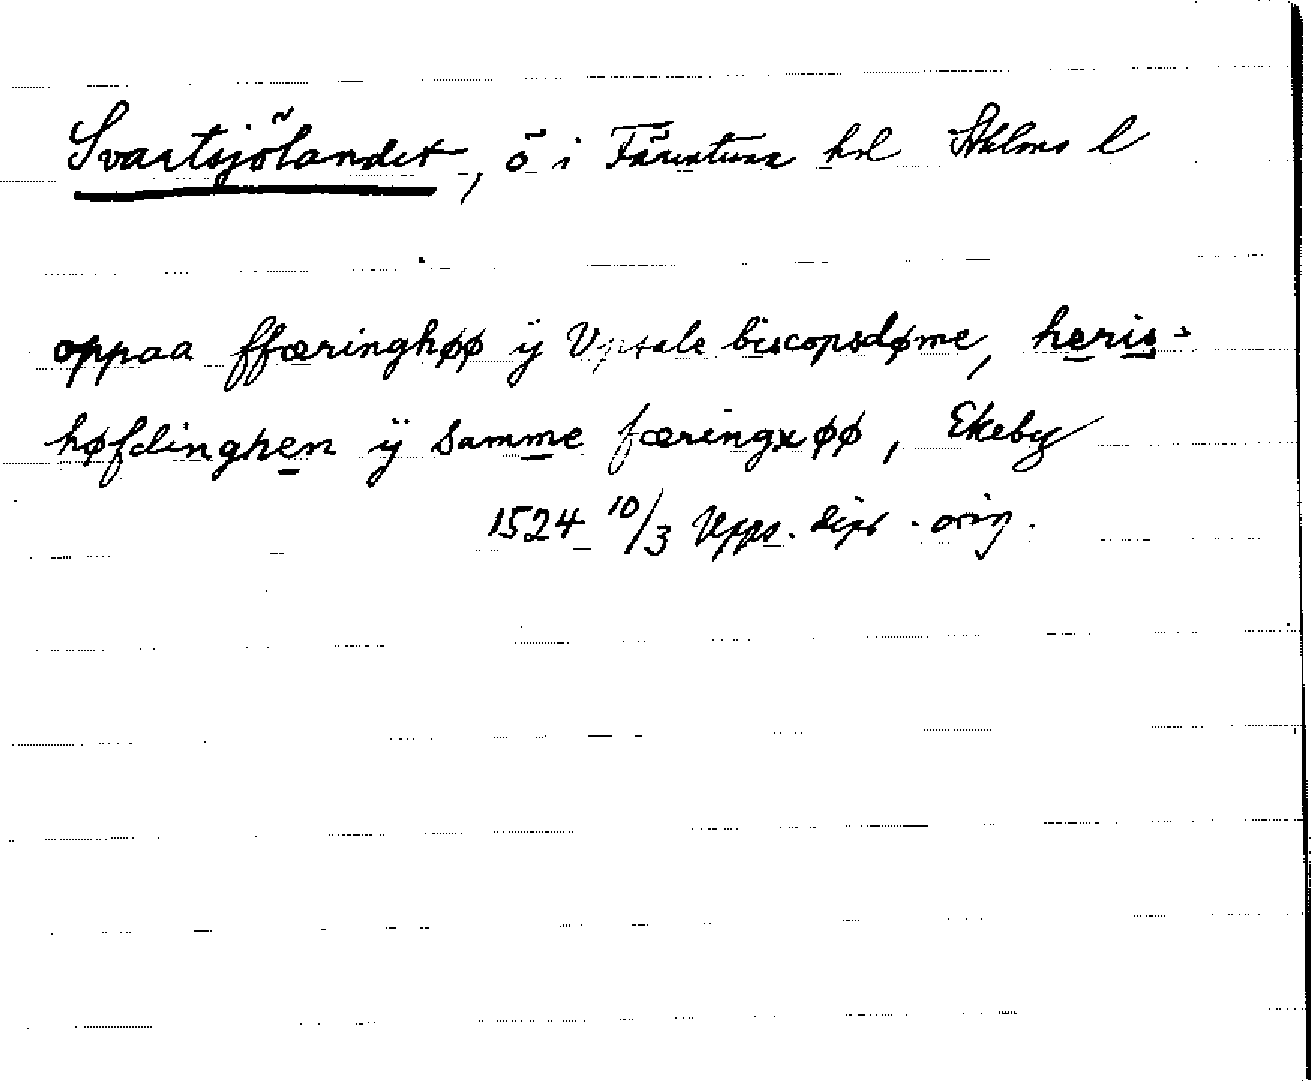 Svartsjölandet, ö i Färentuna hd Sthlms l
oppaa ffæringhøø ij Vpsale biscopsdøme, heris-
høfdinghen ij samme færingxøø, Ekeby
1524 10/3 Upps. dipl. orig.